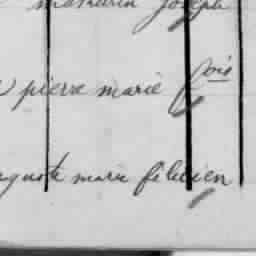 mathurin joseph
pierre marie fois
guste marie félicien